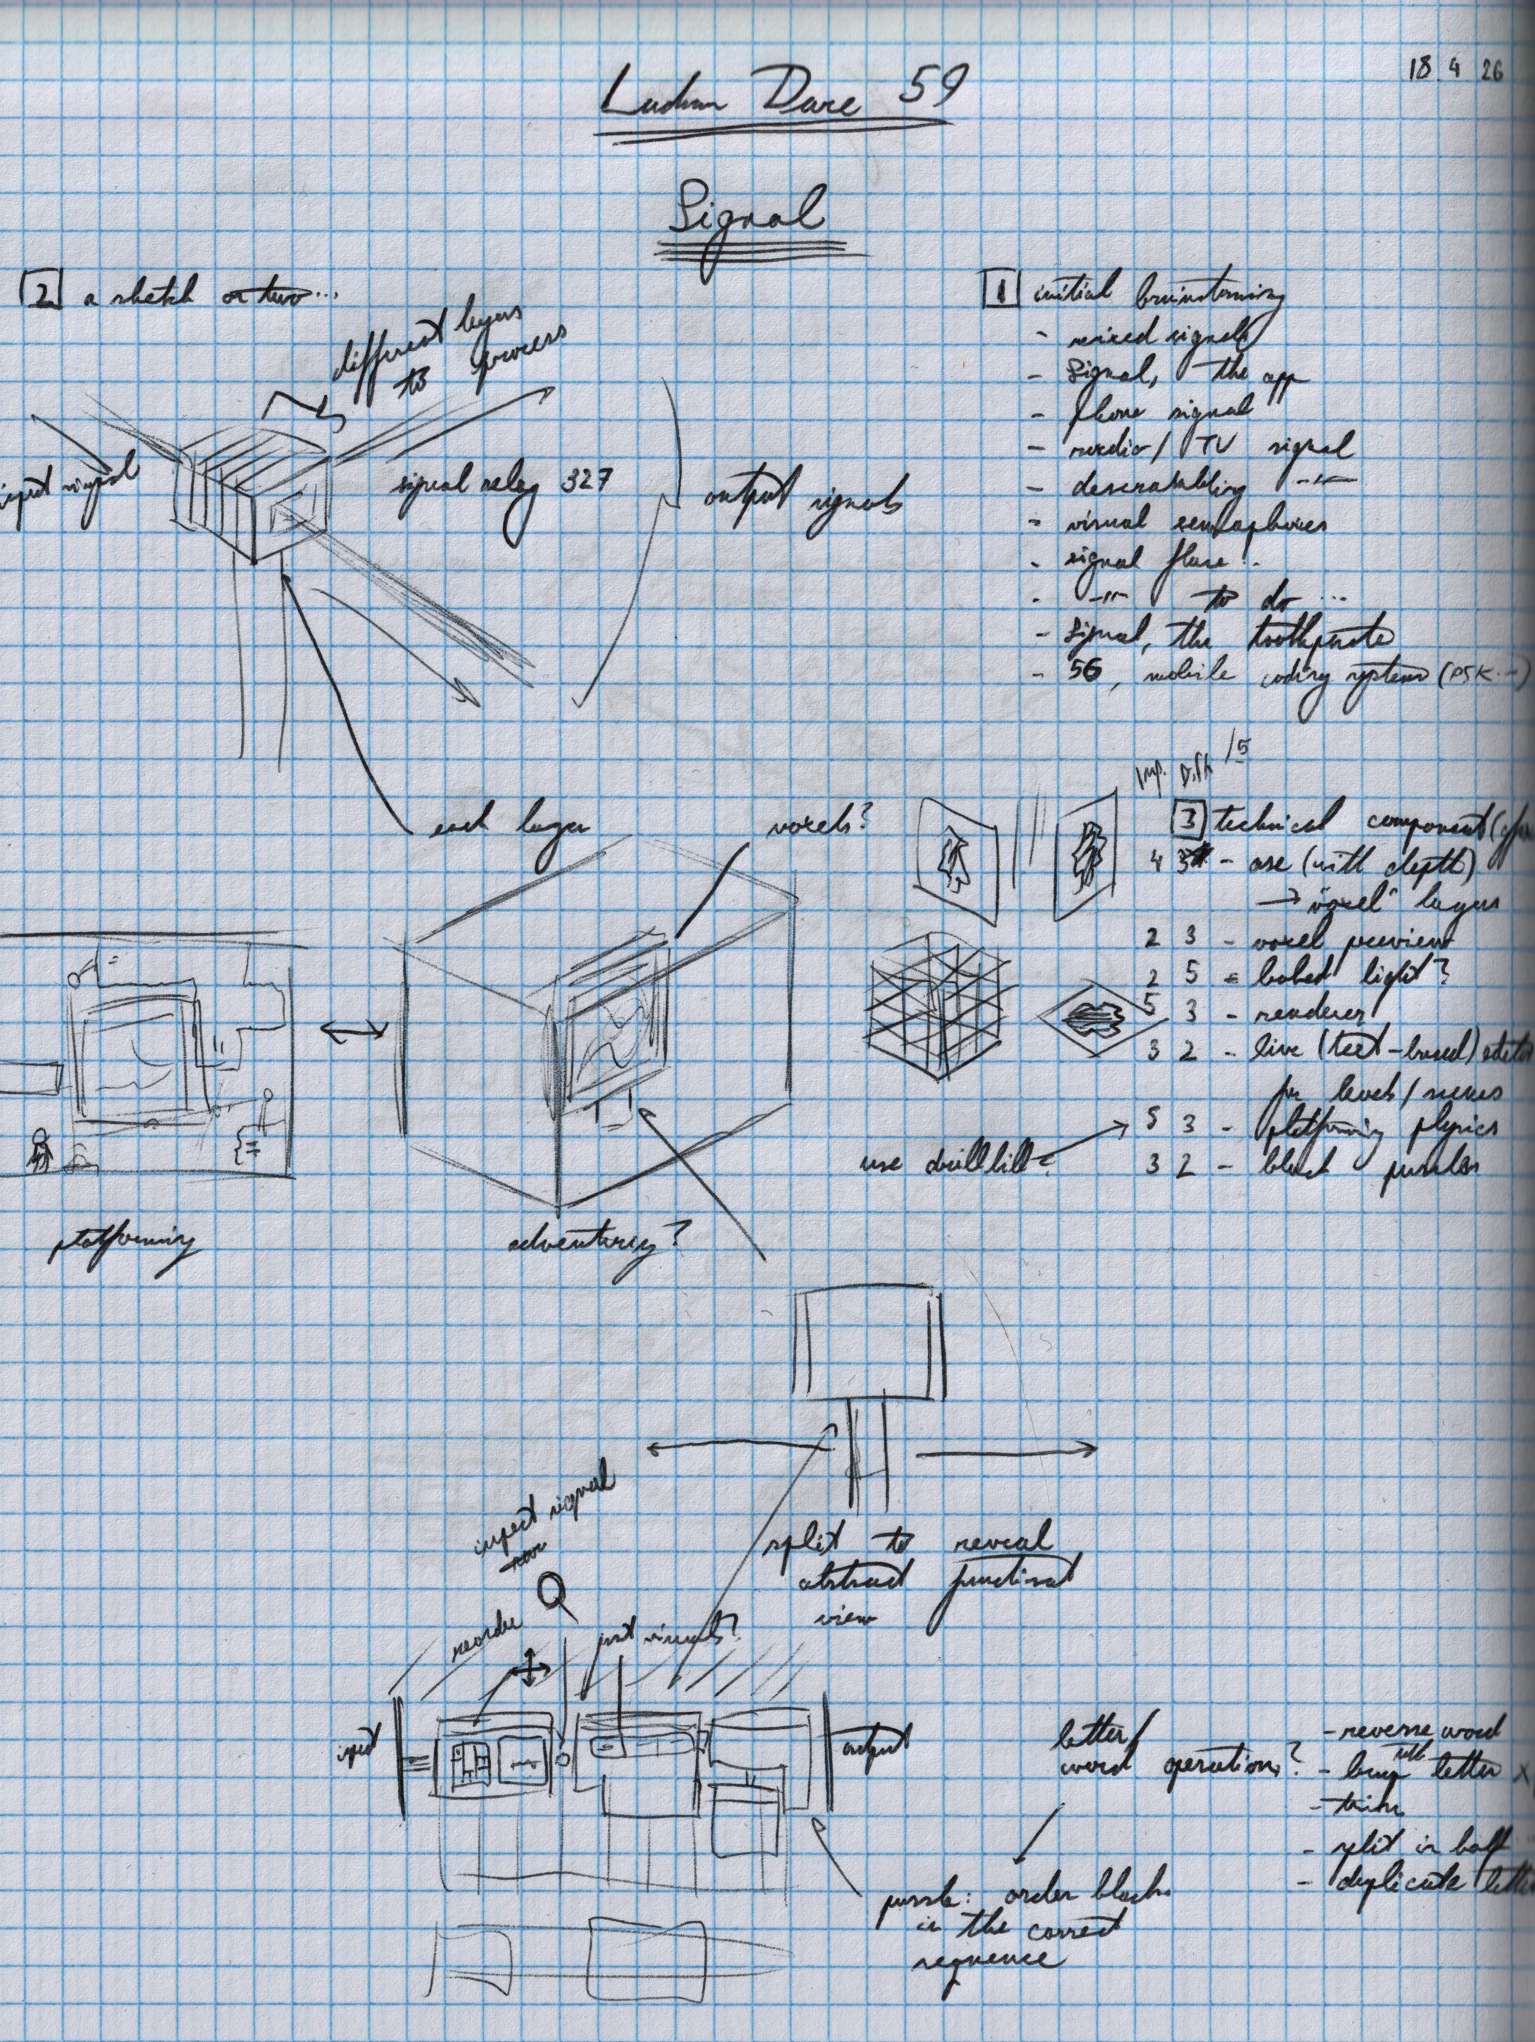 18 4 26
Ludum Dare 59
Signal
2 a sketch or two...
different layers
to process
input signal
signal relay 327
output signals
each layer
voxels?
1 initial brainstorming
- mixed signals
- Signal, the app
- phone signal
- radio / TV signal
- descrambling -"-
- visual semaphores
- signal flare..
- -"- to do ...
- Signal, the toothpaste
- 5G, mobile coding systems (PSK...)
Imp. Diff. /5
3 technical component
4 3 - ase (with depth)
→ "voxel" layers
2 3 - voxel preview
2 5 - baked light?
5 3 - renderer
3 2 - live (text-based) editor
for levels / menus
5 3 - platforming physics
3 2 - block puzzles
use drillbill?
platforming
adventurey?
split to reveal
abstract functional
view
inspect signal
reorder
just visuals?
input
output
letter/
word operations?
- reverse word
- bump letter
- trim
- split in half
- duplicate letter
puzzle: order blocks
in the correct
sequence